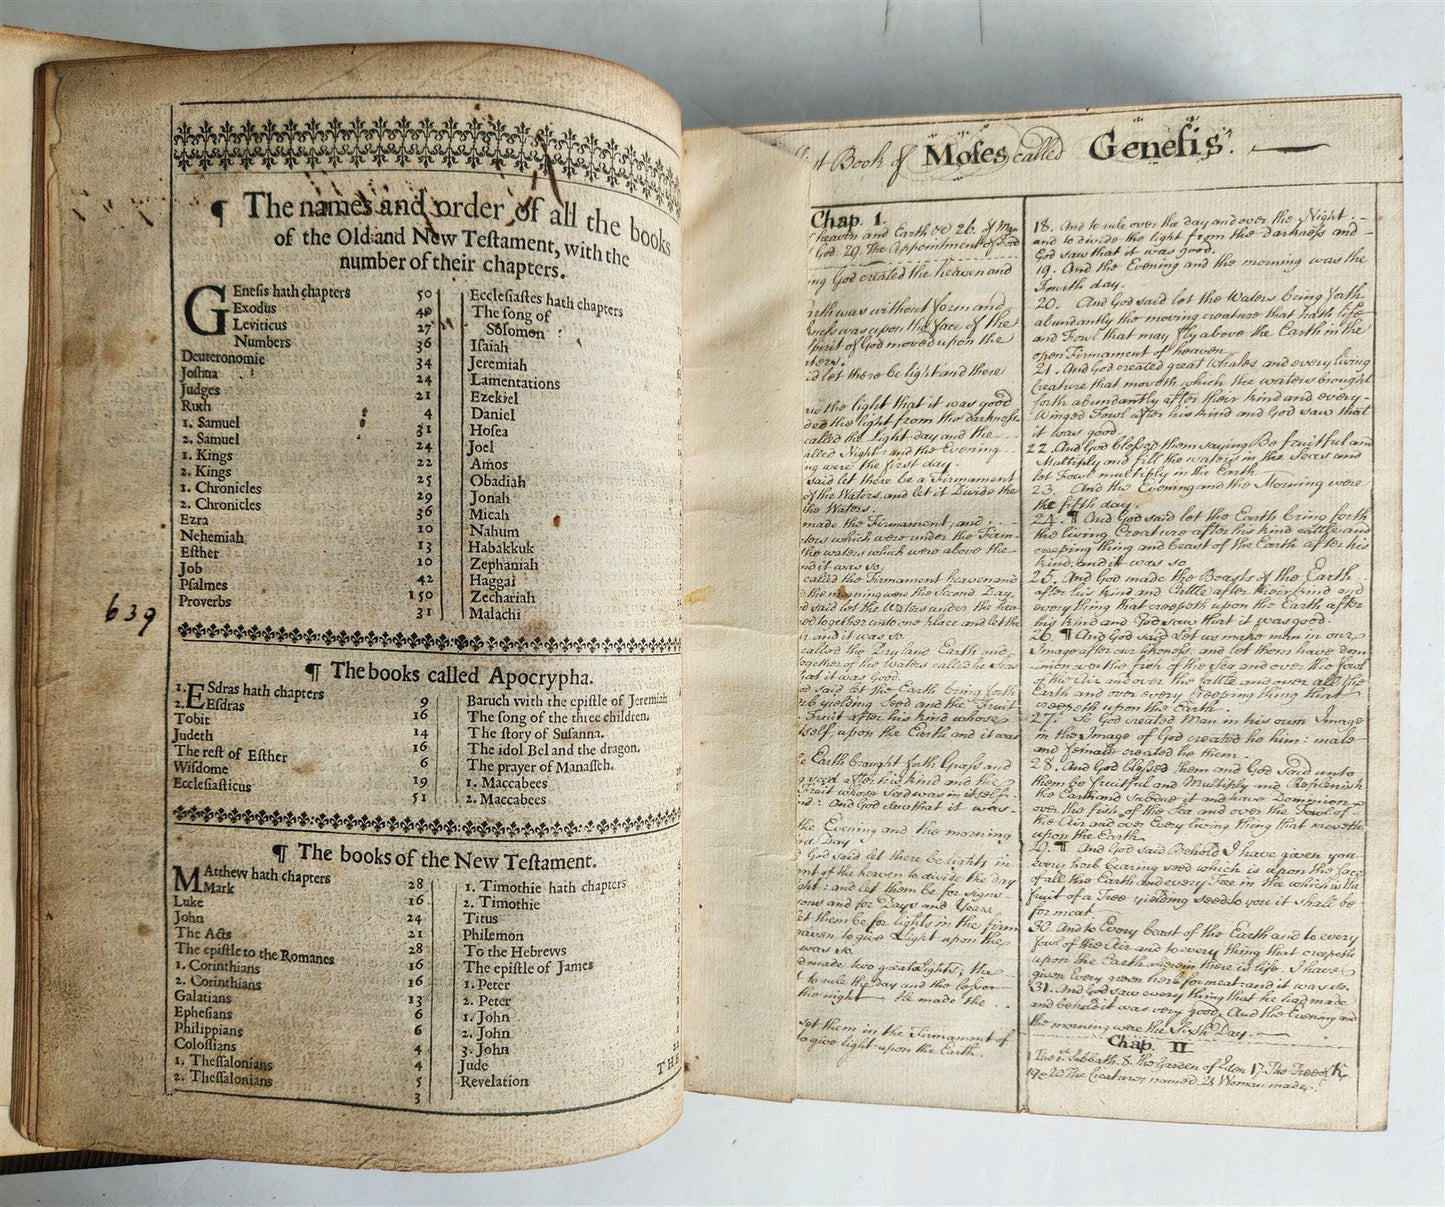 ¶ The names and order of all the books
of the Old and New Teſtament, with the
number of their chapters.
GEneſis hath chapters 50
Exodus 40
Leviticus 27
Numbers 36
Deuteronomie 34
Joſhua 24
Judges 21
Ruth 4
1. Samuel 31
2. Samuel 24
1. Kings 22
2. Kings 25
1. Chronicles 29
2. Chronicles 36
Ezra 10
Nehemiah 13
Eſther 10
Job 42
Pſalmes 150
Proverbs 31
Eccleſiaſtes hath chapters
The ſong of
Solomon
Iſaiah
Jeremiah
Lamentations
Ezekiel
Daniel
Hoſea
Joel
Amos
Obadiah
Jonah
Micah
Nahum
Habakkuk
Zephaniah
Haggai
Zechariah
Malachi
639
¶ The books called Apocrypha.
1. ESdras hath chapters 9
2. Eſdras 16
Tobit 14
Judeth 16
The reſt of Eſther 6
Wiſdome 19
Eccleſiaſticus 51
Baruch with the epiſtle of Jeremiah
The ſong of the three children.
The ſtory of Suſanna.
The idol Bel and the dragon.
The prayer of Manaſſeh.
1. Maccabees
2. Maccabees
¶ The books of the New Teſtament.
MAtthew hath chapters 28
Mark 16
Luke 24
John 21
The Acts 28
The epiſtle to the Romanes 16
1. Corinthians 16
2. Corinthians 13
Galatians 6
Epheſians 6
Philippians 4
Coloſſians 4
1. Theſſalonians 5
2. Theſſalonians 3
1. Timothie hath chapters
2. Timothie
Titus
Philemon
To the Hebrews
The epiſtle of James
1. Peter
2. Peter
1. John
2. John
3. John
Jude
Revelation
THE
Book of Moſes called Geneſis.
Chap. 1.
heaven and Earth 26. of
God. 29. The Appointment of Food
ing God created the heaven and
rth was without form and
kneſs was upon the face of the
Spirit of God moved upon the
aters.
id let there be light and there
w the light that it was good
ded the light from the darkneſs.
called the Light day and the
alled Night: and the Evening
ng were the first day.
said let there be a Firmament
of the Waters, and let it Divide the
the Waters.
made the Firmament, and
ters which were under the Firm-
the waters which were above the
nd it was so.
called the Firmament heaven and
the morning were the Second Day.
d said Let the Waters under the hea-
ed together unto one place and let the
and it was so.
called the Dryland Earth and
ogether of the Waters called he Seas
hat it was Good.
d said let the Earth bring forth
rb yielding Seed and the Fruit
Fruit after his kind whose
itself, upon the Earth and it was
e Earth brought forth Graſs and
g seed after his kind and the
Fruit whose Seed was in it self
nd: And God saw that it was
the Evening and the morning
Day
God said let there be lights in
nt of the heaven to divide the day
ght: and let them be for signs
ons and for Days and Years,
et them be for lights in the firm
eaven to give Light upon the
was so.
d made two great Lights; the
to rule the Day and the leſser
the night he made the
set them in the Firmament of
to give light upon the Earth.
18. And to rule over the day and over the Night
and to divide the light from the darkneſs and
God saw that it was good.
19. And the Evening and the morning was the
Fourth day.
20. And God said let the Waters bring forth
abundantly the moving creature that hath life
and Fowl that may fly above the Earth in the
open Firmament of heaven
21. And God created great whales and every living
Creature that moveth which the waters brought
forth abundantly after their kind and every-
Winged Fowl after his kind and God saw that
it was good.
22. And God bleſsed them saying Be fruitful and
Multiply and fill the waters in the Seas and
let Fowl multiply in the Earth
23. And the Evening and the Morning were
the fifth day.
24. ¶ And God said let the Earth bring forth
the living Creature after his kind cattle and
creeping thing and beast of the Earth after his
kind: and it was so
25. And God made the Beasts of the Earth
after his kind and Cattle after their kind and
every thing that creepeth upon the Earth after
his kind and God saw that it was good.
26. ¶ And God said Let us make man in our
Image after our likeneſs: and let them have dom
inion over the fish of the Sea and over the fowl
of the Air and over the Cattle and over all the
Earth and over every Creeping thing that
creepeth upon the Earth.
27. So God created Man in his own Image
in the Image of God created he him: male
and female created he them.
28. And God bleſsed them and God said unto
them be fruitful and Multiply and Replenish
the Earth and subdue it and have Dominion
over the fish of the Sea and over the Fowl of
the Air and over Every living thing that moveth
upon the Earth.
29. ¶ And God said Behold I have given you
Every herb bearing seed which is upon the face
of all the Earth and every Tree in the which is the
fruit of a Tree yielding seed to you it shall be
for meat
30. And to Every beast of the Earth and to every
fowl of the Air and to every thing that creepeth
upon the Earth wherein there is life, I have
given Every green herb for meat: and it was so.
31. And God saw every thing that he had made
and behold it was very good. And the Evening and
the morning were the Sixth Day.
Chap. II
1 The 1st Sabbath 8 the Garden of Eden 17. The Tree of K
19 20 The Creatures named 21 Woman made.